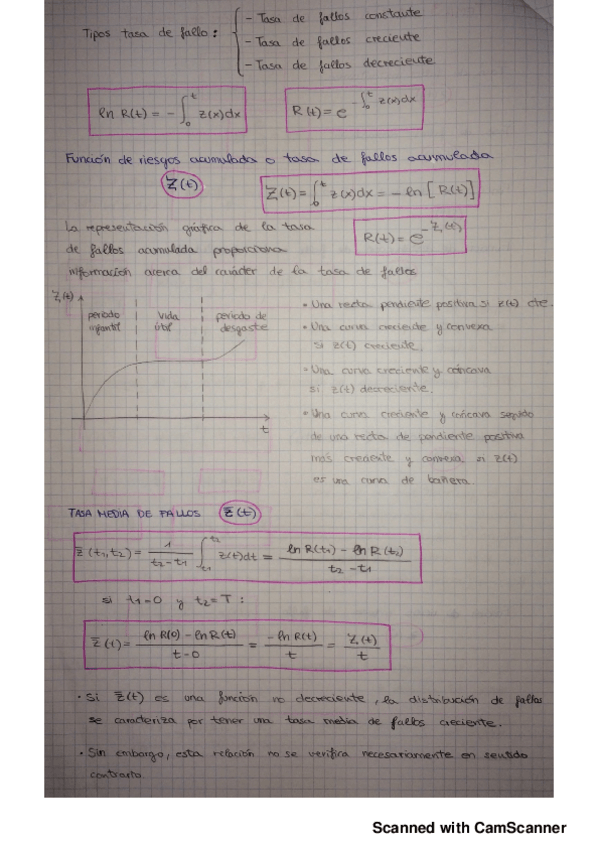 Tipos tasa de fallo:
- Tasa de fallos constante
- Tasa de fallos creciente
- Tasa de fallos decreciente
ln R(t) = - ∫₀ᵗ z(x)dx
R(t) = e^(-∫₀ᵗ z(x)dx)
Función de riesgos acumulada o tasa de fallos acumulada
Z(t)
Z(t) = ∫₀ᵗ z(x)dx = - ln [R(t)]
La representación gráfica de la tasa
de fallos acumulada proporciona
información acerca del carácter de la tasa de fallos
R(t) = e^(-Z(t))
Z(t)
periodo infantil
vida útil
periodo de desgaste
t
• Una recta pendiente positiva si z(t) cte.
• Una curva creciente y convexa
si z(t) creciente.
• Una curva creciente y cóncava
si z(t) decreciente.
• Una curva creciente y cóncava seguido
de una recta de pendiente positiva
mas creciente y convexa, si z(t)
es una curva de bañera.
TASA MEDIA DE FALLOS z̄(t)
z̄(t₁,t₂) = 1/(t₂-t₁) ∫ₜ₁ᵗ² z(t)dt = (ln R(t₁) - ln R(t₂))/(t₂-t₁)
si t₁=0 y t₂=T:
z̄(t) = (ln R(0) - ln R(t))/(t-0) = (-ln R(t))/t = Z(t)/t
• Si z̄(t) es una función no decreciente, la distribución de fallos
se caracteriza por tener una tasa media de fallos creciente.
• Sin embargo, esta relación no se verifica necesariamente en sentido
contrario.
Scanned with CamScanner